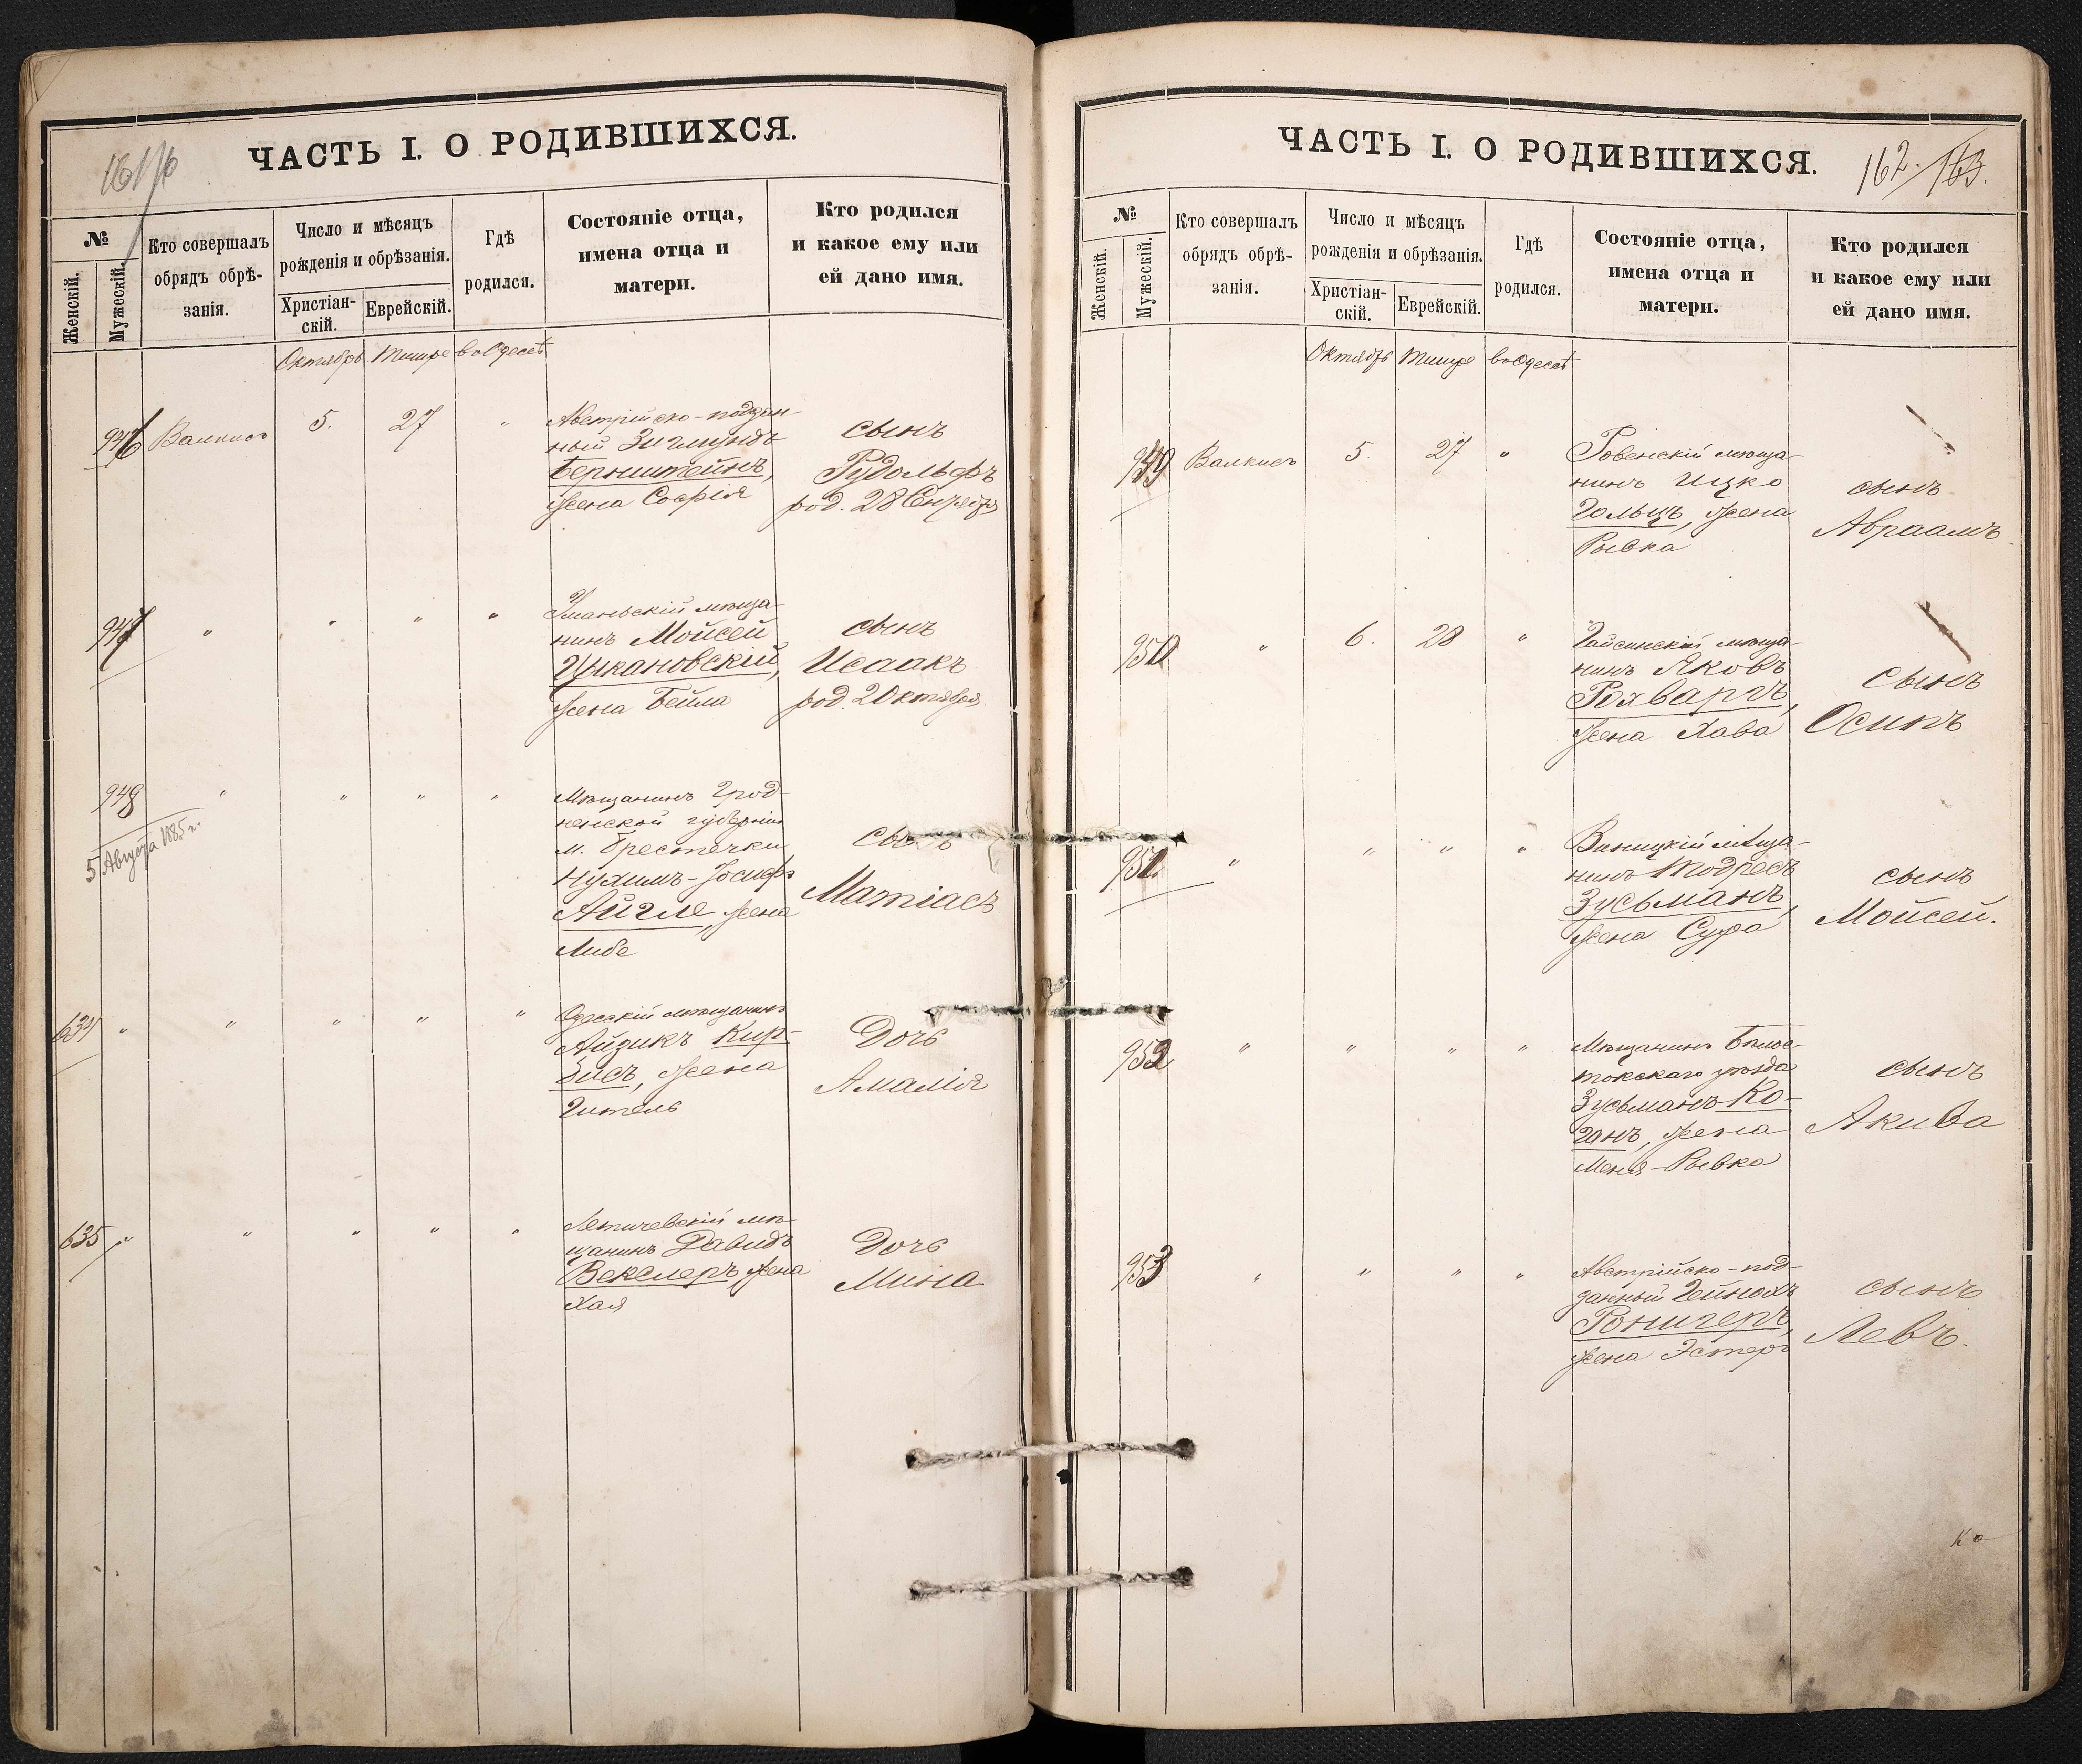 ЧАСТЬ I. О РОДИВШИХСЯ.
№
Женскій.
Мужескій.
Кто совершалъ
обрядъ обрѣ-
занія.
Число и мѣсяцъ
рожденія и обрѣзанія.
Христіан-
скій.
Еврейскій.
Гдѣ
родился.
Состояніе отца,
имена отца и
матери.
Кто родился
и какое ему или
ей дано имя.
Октябрь Тишре въ Одессѣ
946 Валкисъ 5. 27 "
Австрійско-поддан-
ный Зигмундъ
Бернштейнъ,
жена Софія
сынъ
Рудольфъ
род. 28 Сентября
947 " " " "
Уманьскій мѣща-
нинъ Мойсей
Цыкановскій,
жена Бейла
сынъ
Исаакъ
род. 2 Октября.
948 " " " "
5 Августа 1885 г.
Мѣщанинъ Грод-
ненской губерніи
м. Брестечки
Нухимъ-Іосифъ
Айгле, жена
Либе
сынъ
Матіасъ
634 " " " " "
Одесскій мѣщанинъ
Айзикъ Кир-
бисъ, жена
Гитель
Дочь
Амалія
635 " " " " "
Летичевскій мѣ-
щанинъ Давидъ
Векслеръ жена
Хая
Дочь
Мина
ЧАСТЬ I. О РОДИВШИХСЯ.
162. 163.
№
Женскій.
Мужескій.
Кто совершалъ
обрядъ обрѣ-
занія.
Число и мѣсяцъ
рожденія и обрѣзанія.
Христіан-
скій.
Еврейскій.
Гдѣ
родился.
Состояніе отца,
имена отца и
матери.
Кто родился
и какое ему или
ей дано имя.
Октябрь Тишре въ Одессѣ
949 Валкисъ 5. 27 "
Ровенскій мѣща-
нинъ Ицко
Гольцъ, жена
Рывка
сынъ
Авраамъ
950 " 6. 28 "
Гайсинскій мѣща-
нинъ Яковъ
Ройваргъ,
жена Хава
сынъ
Осипъ
951 " " " "
Виницкій мѣща-
нинъ Тодресъ
Зусьманъ,
жена Сура
сынъ
Мойсей.
952 " " " "
Мѣщанинъ Бѣлос-
токскаго уѣзда
Зусьманъ Ко-
ганъ, жена
Меня-Рывка
сынъ
Акива
953 " " " "
Австрійско-под-
данный Гейнохъ
Ронигеръ,
жена Эстеръ
сынъ
Левъ.